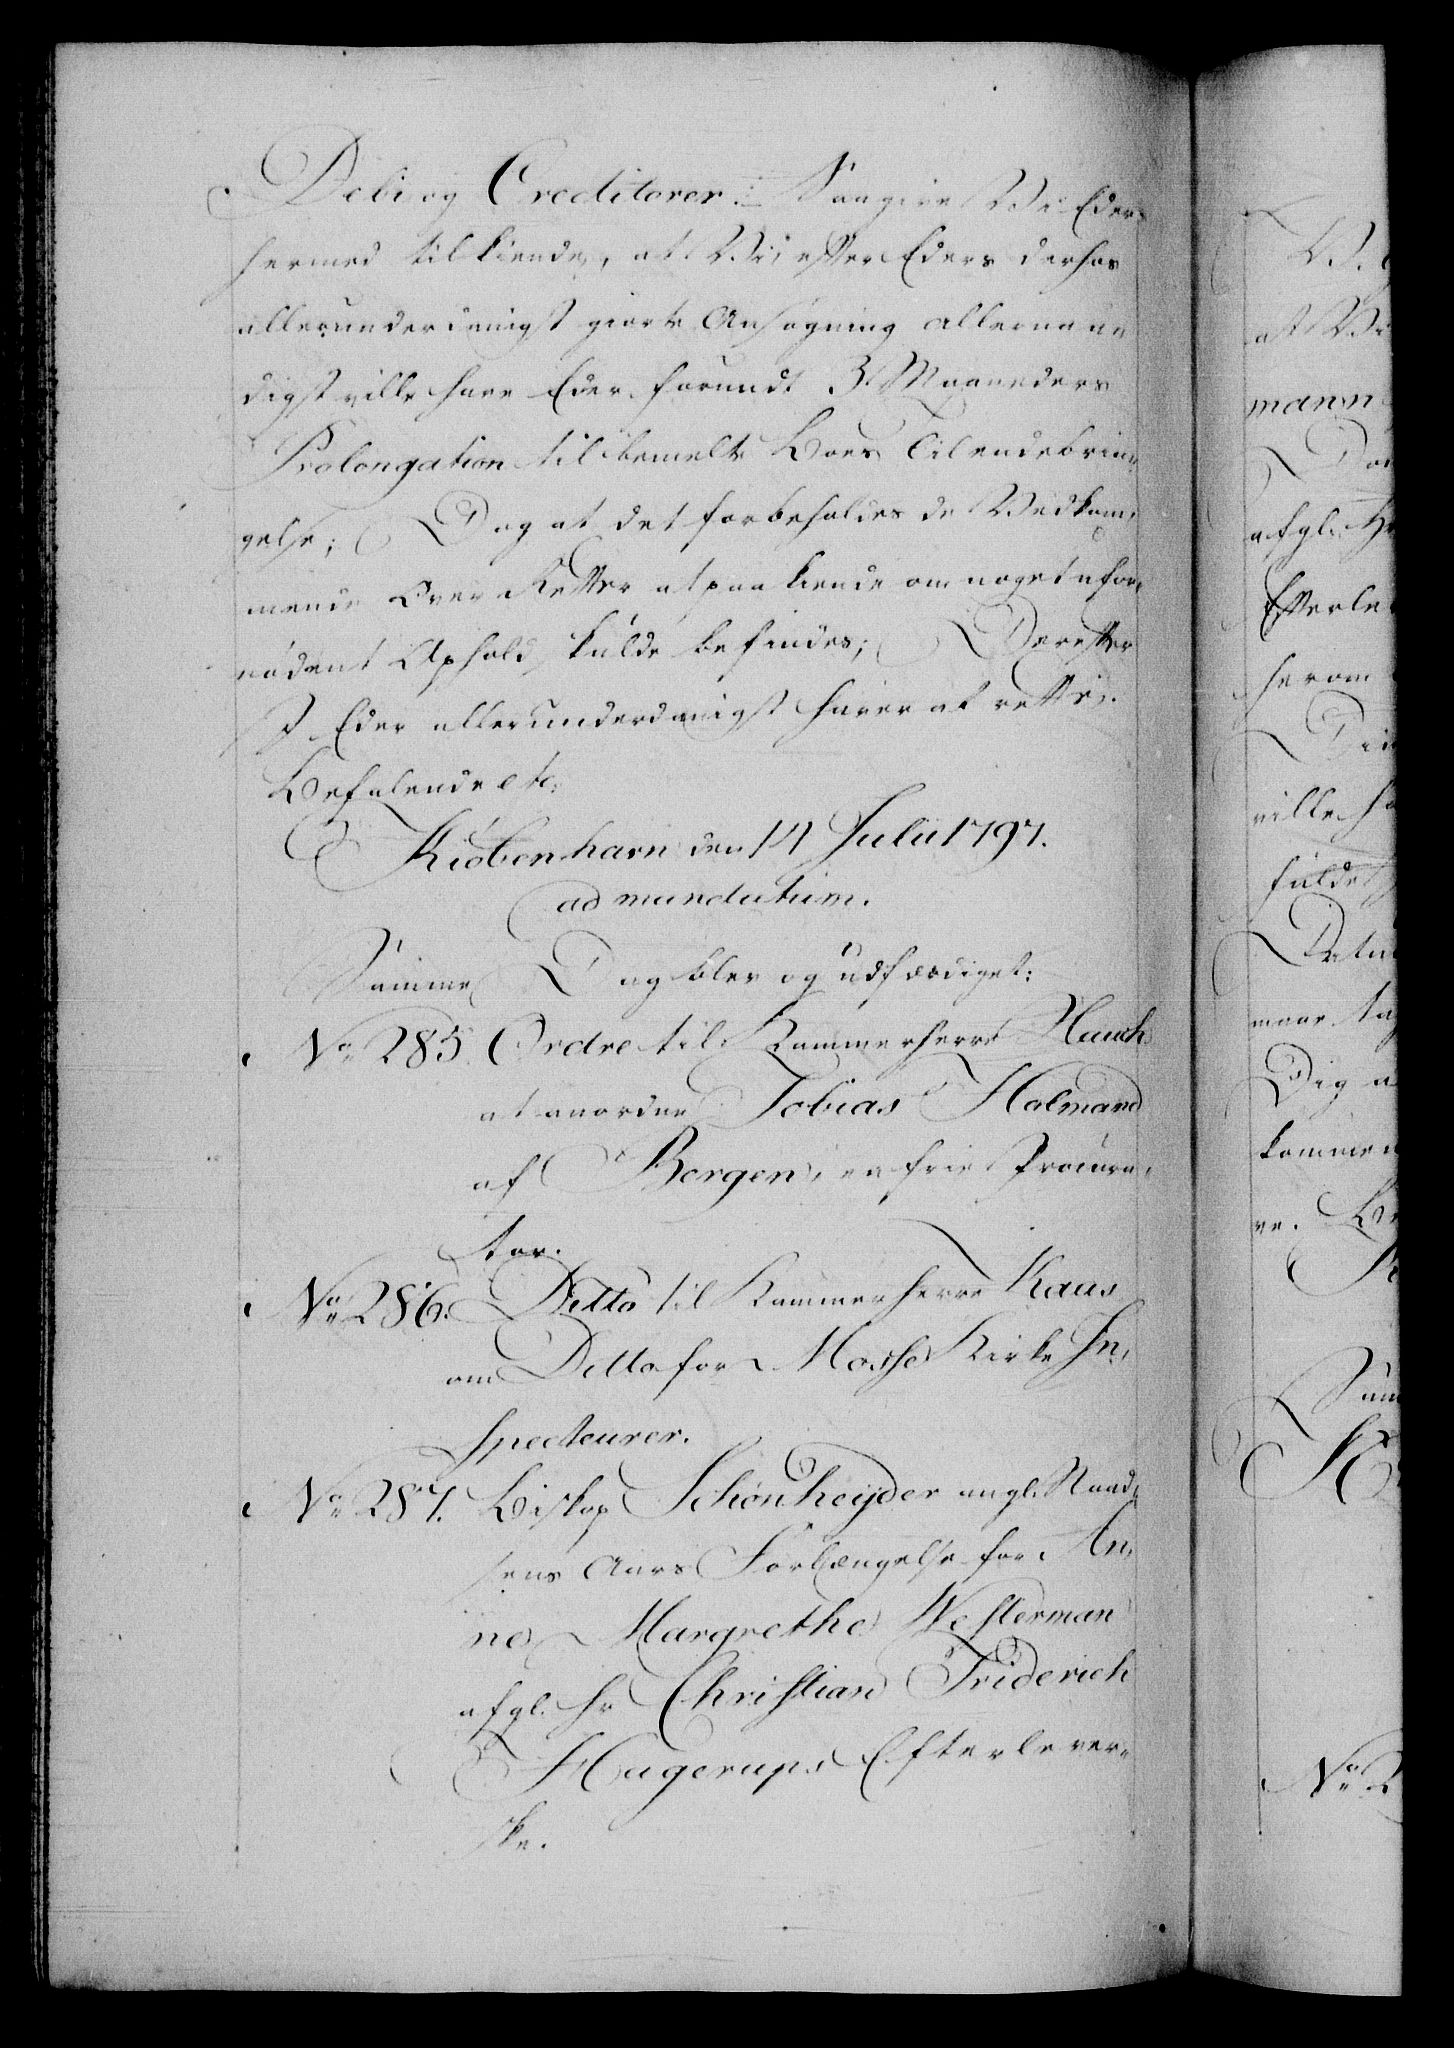 Debi og Creditorer :/: Saa give Vi Eder
hermed tilkiende, at Vi efter Eders derhos
allerunderdanigst giorte Ansøgning allernaa-
digst ville have Eder forundt 3 Maaneders
Prolongation til bemelte Boes Tilendebrin-
gelse; Dog at det forbeholdes de Vedkom-
mende Over Retter at paakiende om noget ufor-
nødent Ophold skulde befindes; Derefter
I Eder allerunderdanigst haver at rette.
Befalende etc:
Kiøbenhavn den 14 Julii 1797.
ad mandatum.
Samme Dag blev og udfærdiget:
No 285. Ordre til Kammerherre Hauch
at anordne Tobias Holmand
af Bergen, en frie Procura-
tor.
No 286. Ditto til Kammerherre Kaas
om Ditto for Mosse Kirke In-
specteurer.
No 287. Biskop Schønheyder angl. Naad-
sens Aars Forlængelse for An-
ne Margrethe Westerman
afgl. Hr Christian Friderich
Hagerups Efterlever-
ske.
mann
afgl. Hr
herom
ville ha
No 2